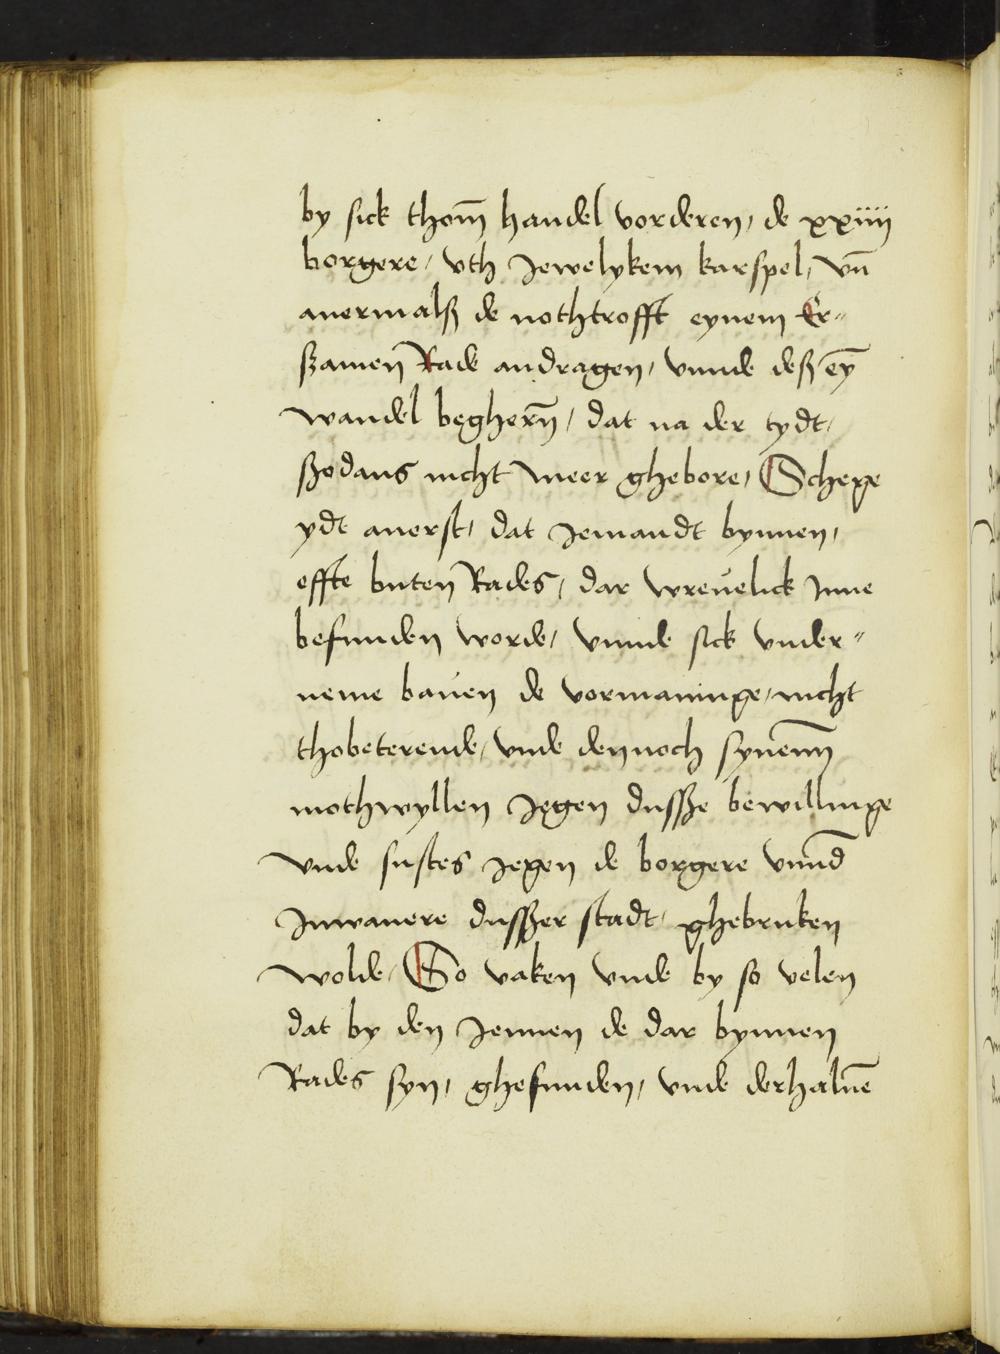 by sick thom̄ handel vorderen, de xxiiij
borgere, vth Jewelykem karspel, vn̄
auermalß de nothtrofft eynem Er-
ßamen Rade andragen, vnnde deß eȳ
wandel beghern̄, dat na der tydt,
ßodans nicht meer ghebore, Schege
ydt auerst, dat Jemandt bynnen,
effte buten Rades, dar wreuelick Jnne
befunden worde, vnnde sick vnder-
neme bauen de vormaninge, nicht
thobeterende, vnde dennoch synenn̄
mothwyllen Jegen dusße bewillinge
vnde sustes Jegen de borgere vnnd̄
Jnwanere dusßer stadt, ghebruken
wolde, So vaken vnde by so velen
dat by den Jennen de dar bynnen
Rades syn, ghefunden, vnde derhaluē